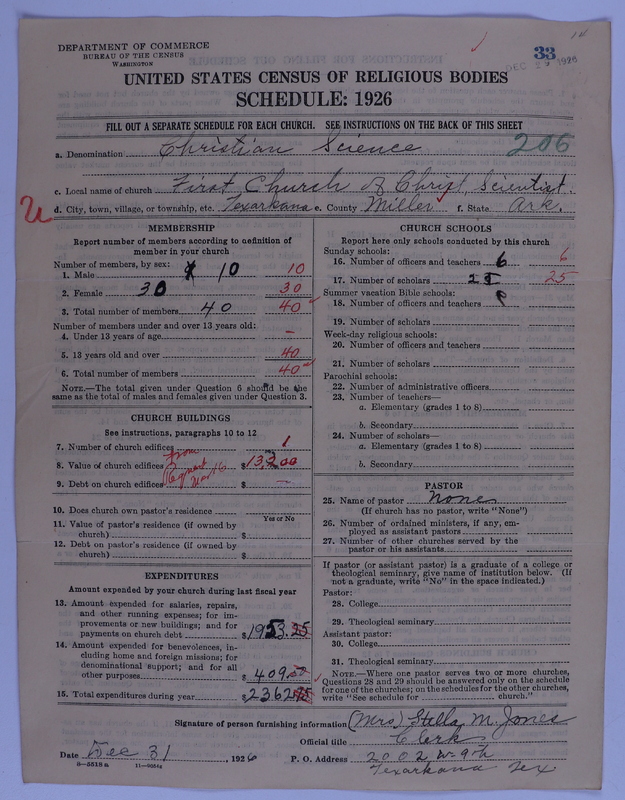 DEPARTMENT OF COMMERCE
BUREAU OF THE CENSUS
WASHINGTON
33
DEC 1926
UNITED STATES CENSUS OF RELIGIOUS BODIES
SCHEDULE: 1926
FILL OUT A SEPARATE SCHEDULE FOR EACH CHURCH. SEE INSTRUCTIONS ON THE BACK OF THIS SHEET
206
a. Denomination Christian Science
c. Local name of church First Church of Christ, Scientist.
d. City, town, village, or township, etc. Texarkana e. County Miller f. State Ark.
MEMBERSHIP
Report number of members according to definition of
member in your church
Number of members, by sex:
1. Male 10 10
2. Female 30 30
3. Total number of members 40 40
Number of members under and over 13 years old:
4. Under 13 years of age –
5. 13 years old and over 40
6. Total number of members 40
NOTE.—The total given under Question 6 should be the
same as the total of males and females given under Question 3.
CHURCH BUILDINGS
See instructions, paragraphs 10 to 12
7. Number of church edifices 1
8. Value of church edifices $
from
9. Debt on church edifices $ –
10. Does church own pastor's residence
Yes or No
11. Value of pastor's residence (if owned by
church) $
12. Debt on pastor's residence (if owned by
church) $
EXPENDITURES
Amount expended by your church during last fiscal year
13. Amount expended for salaries, repairs,
and other running expenses; for im-
provements or new buildings; and for
payments on church debt $1953.
14. Amount expended for benevolences, in-
cluding home and foreign missions; for
denominational support; and for all
other purposes $409.
15. Total expenditures during year $2362
CHURCH SCHOOLS
Report here only schools conducted by this church
Sunday schools:
16. Number of officers and teachers 6 6
17. Number of scholars 25 25
Summer vacation Bible schools:
18. Number of officers and teachers
19. Number of scholars
Week-day religious schools:
20. Number of officers and teachers
21. Number of scholars
Parochial schools:
22. Number of administrative officers
23. Number of teachers—
a. Elementary (grades 1 to 8)
b. Secondary
24. Number of scholars—
a. Elementary (grades 1 to 8)
b. Secondary
PASTOR
25. Name of pastor None
(If church has no pastor, write "None")
26. Number of ordained ministers, if any, em-
ployed as assistant pastors
27. Number of other churches served by the
pastor or his assistants
If pastor (or assistant pastor) is a graduate of a college or
theological seminary, give name of institution below. (If
not a graduate, write "No" in the space indicated.)
Pastor:
28. College
29. Theological seminary
Assistant pastor:
30. College
31. Theological seminary
NOTE.—Where one pastor serves two or more churches,
Questions 28 and 29 should be answered only on the schedule
for one of the churches; on the schedules for the other churches,
write "See schedule for church."
Signature of person furnishing information (Mrs) Stella M. Jones
Official title Clerk
Date Dec 31, 1926 P. O. Address 2002 W-9th
8—5518 a Texarkana Tex